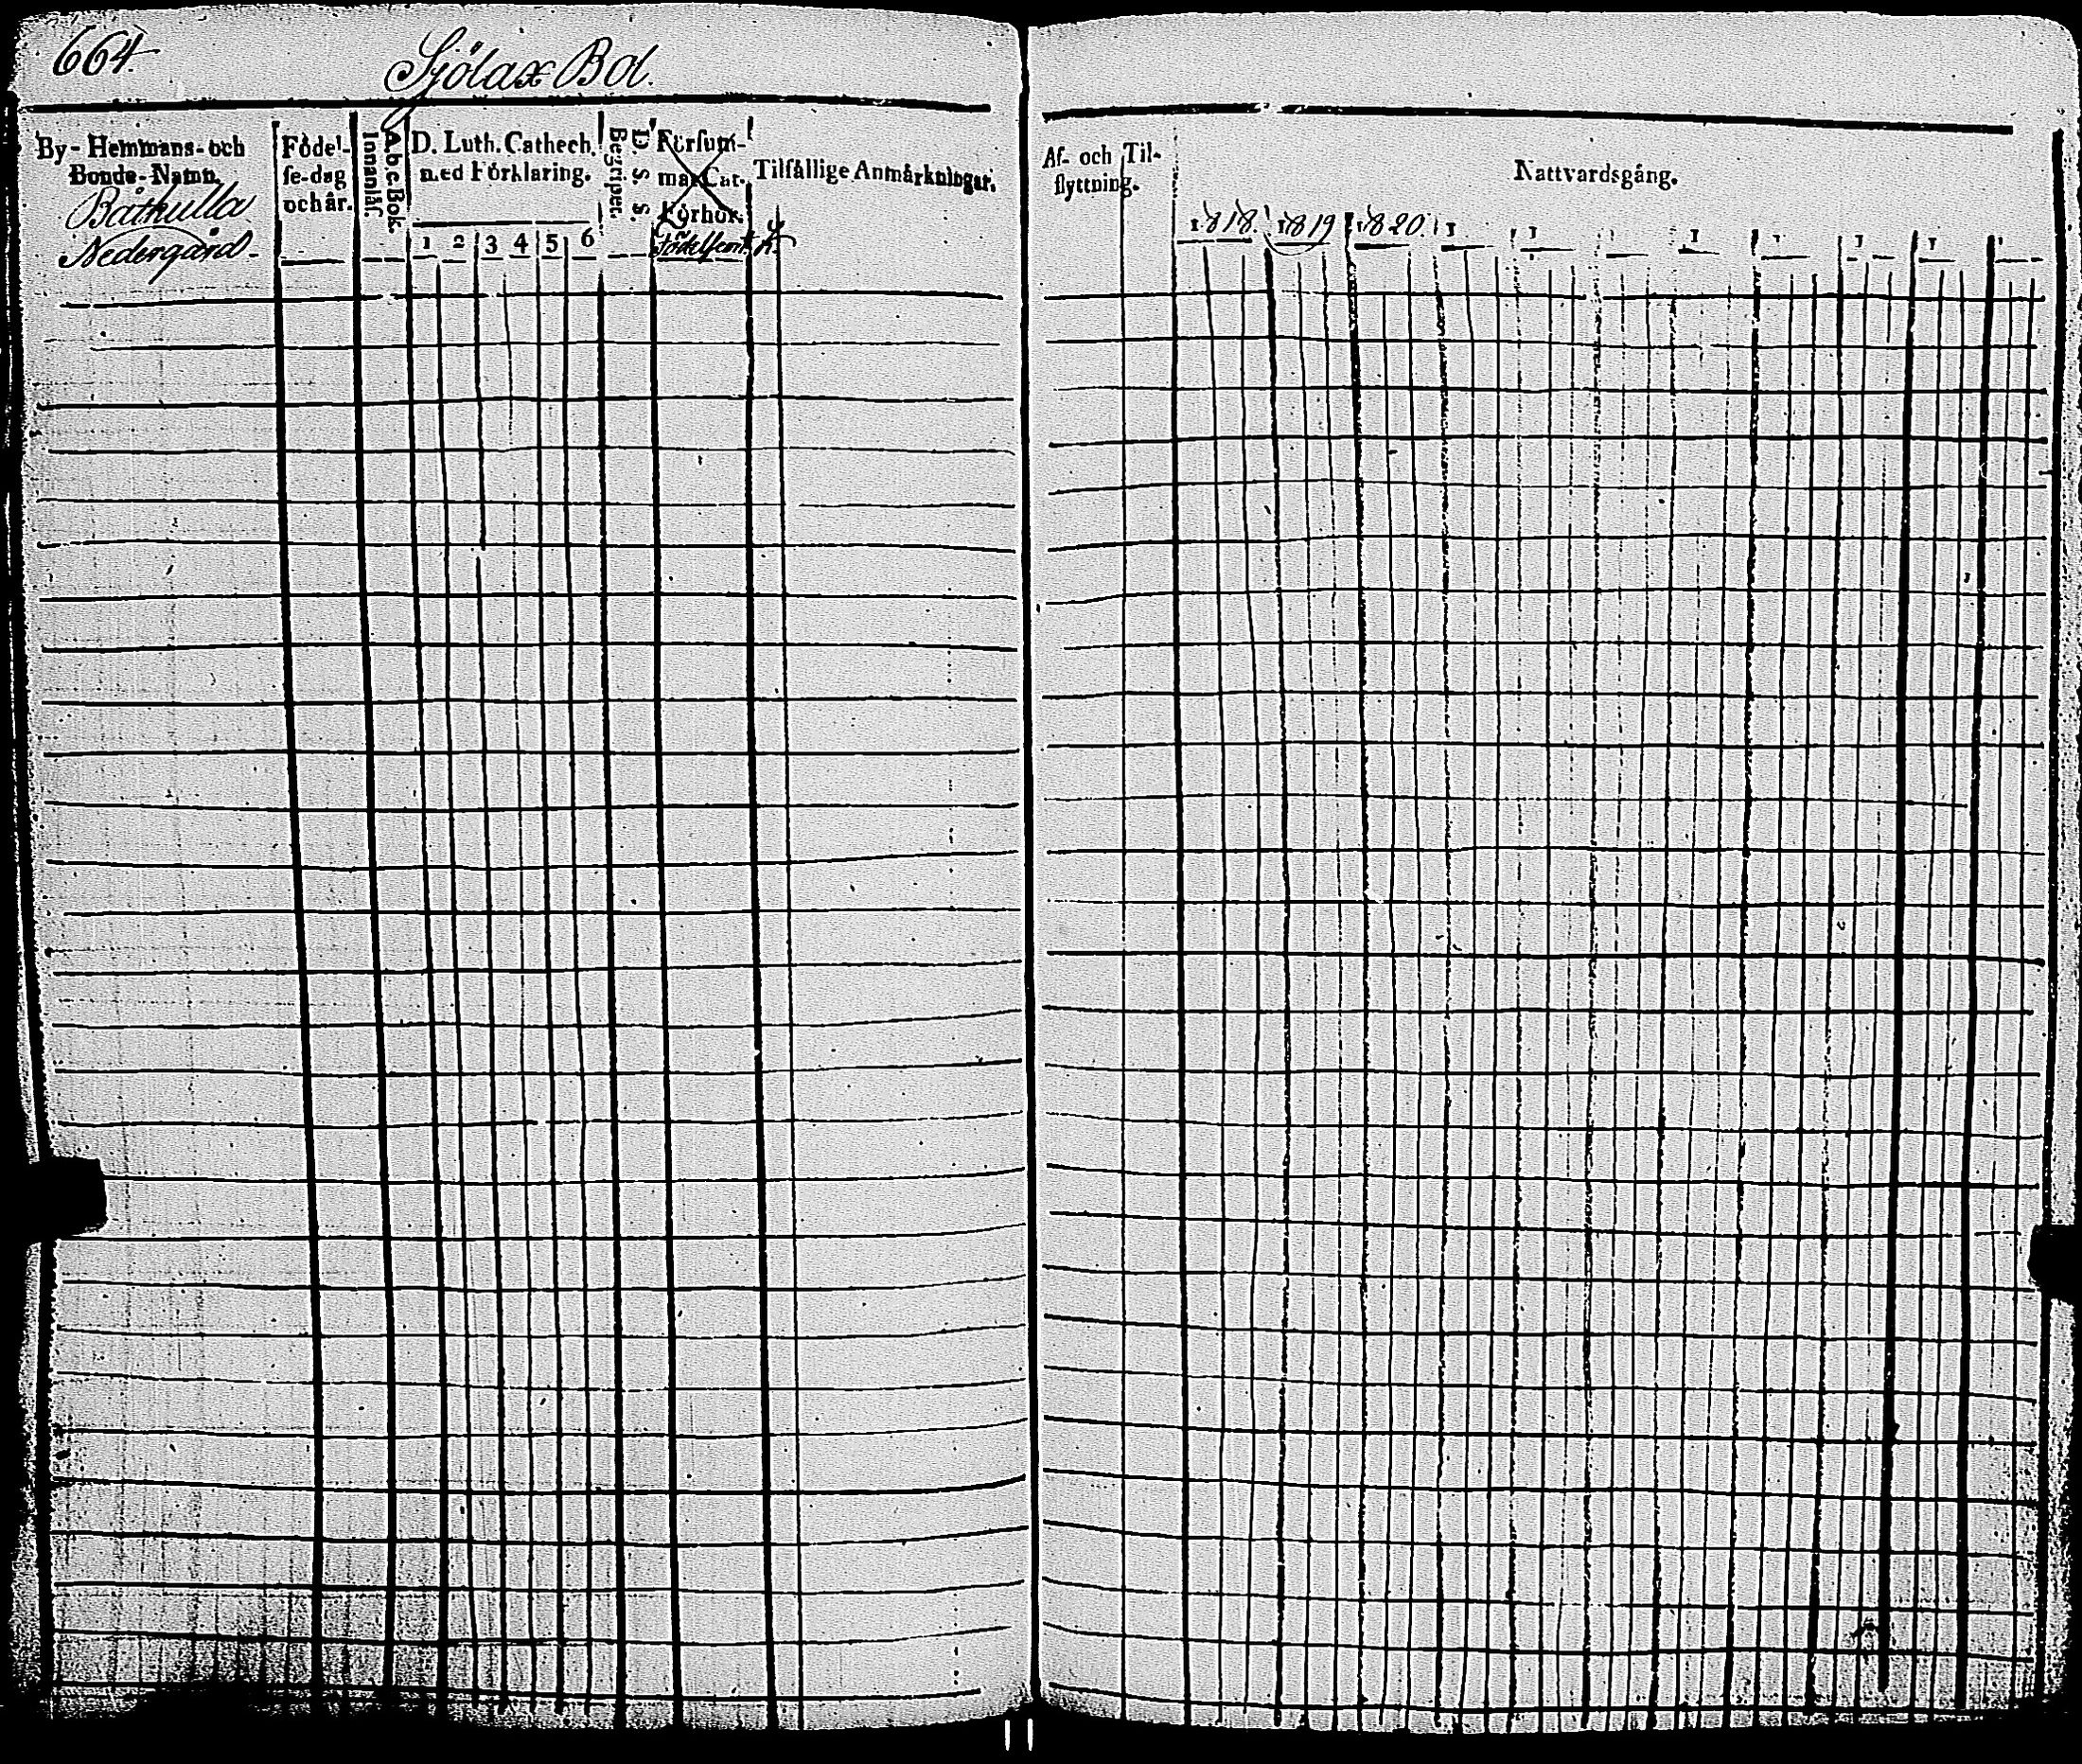 664.
Sjölax Bol.
By-Hemmans-och
Bonde-Namn.
Båtkulla
Nedergård.
Födel-
se-dag
och år.
A.b.c. Bok.
Innanläs.
D. Luth. Cathech.
med Förklaring.
1 2 3 4 5 6
D. S. S.
Begripet.
Försum-
mar Cat.
Förhör.
Födelseort.
Tilfällige Anmärkningar.
Af- och Til-
flyttning.
Nattvardsgång.
1818. 1819 1820. 1 1 1 1 1 1 1